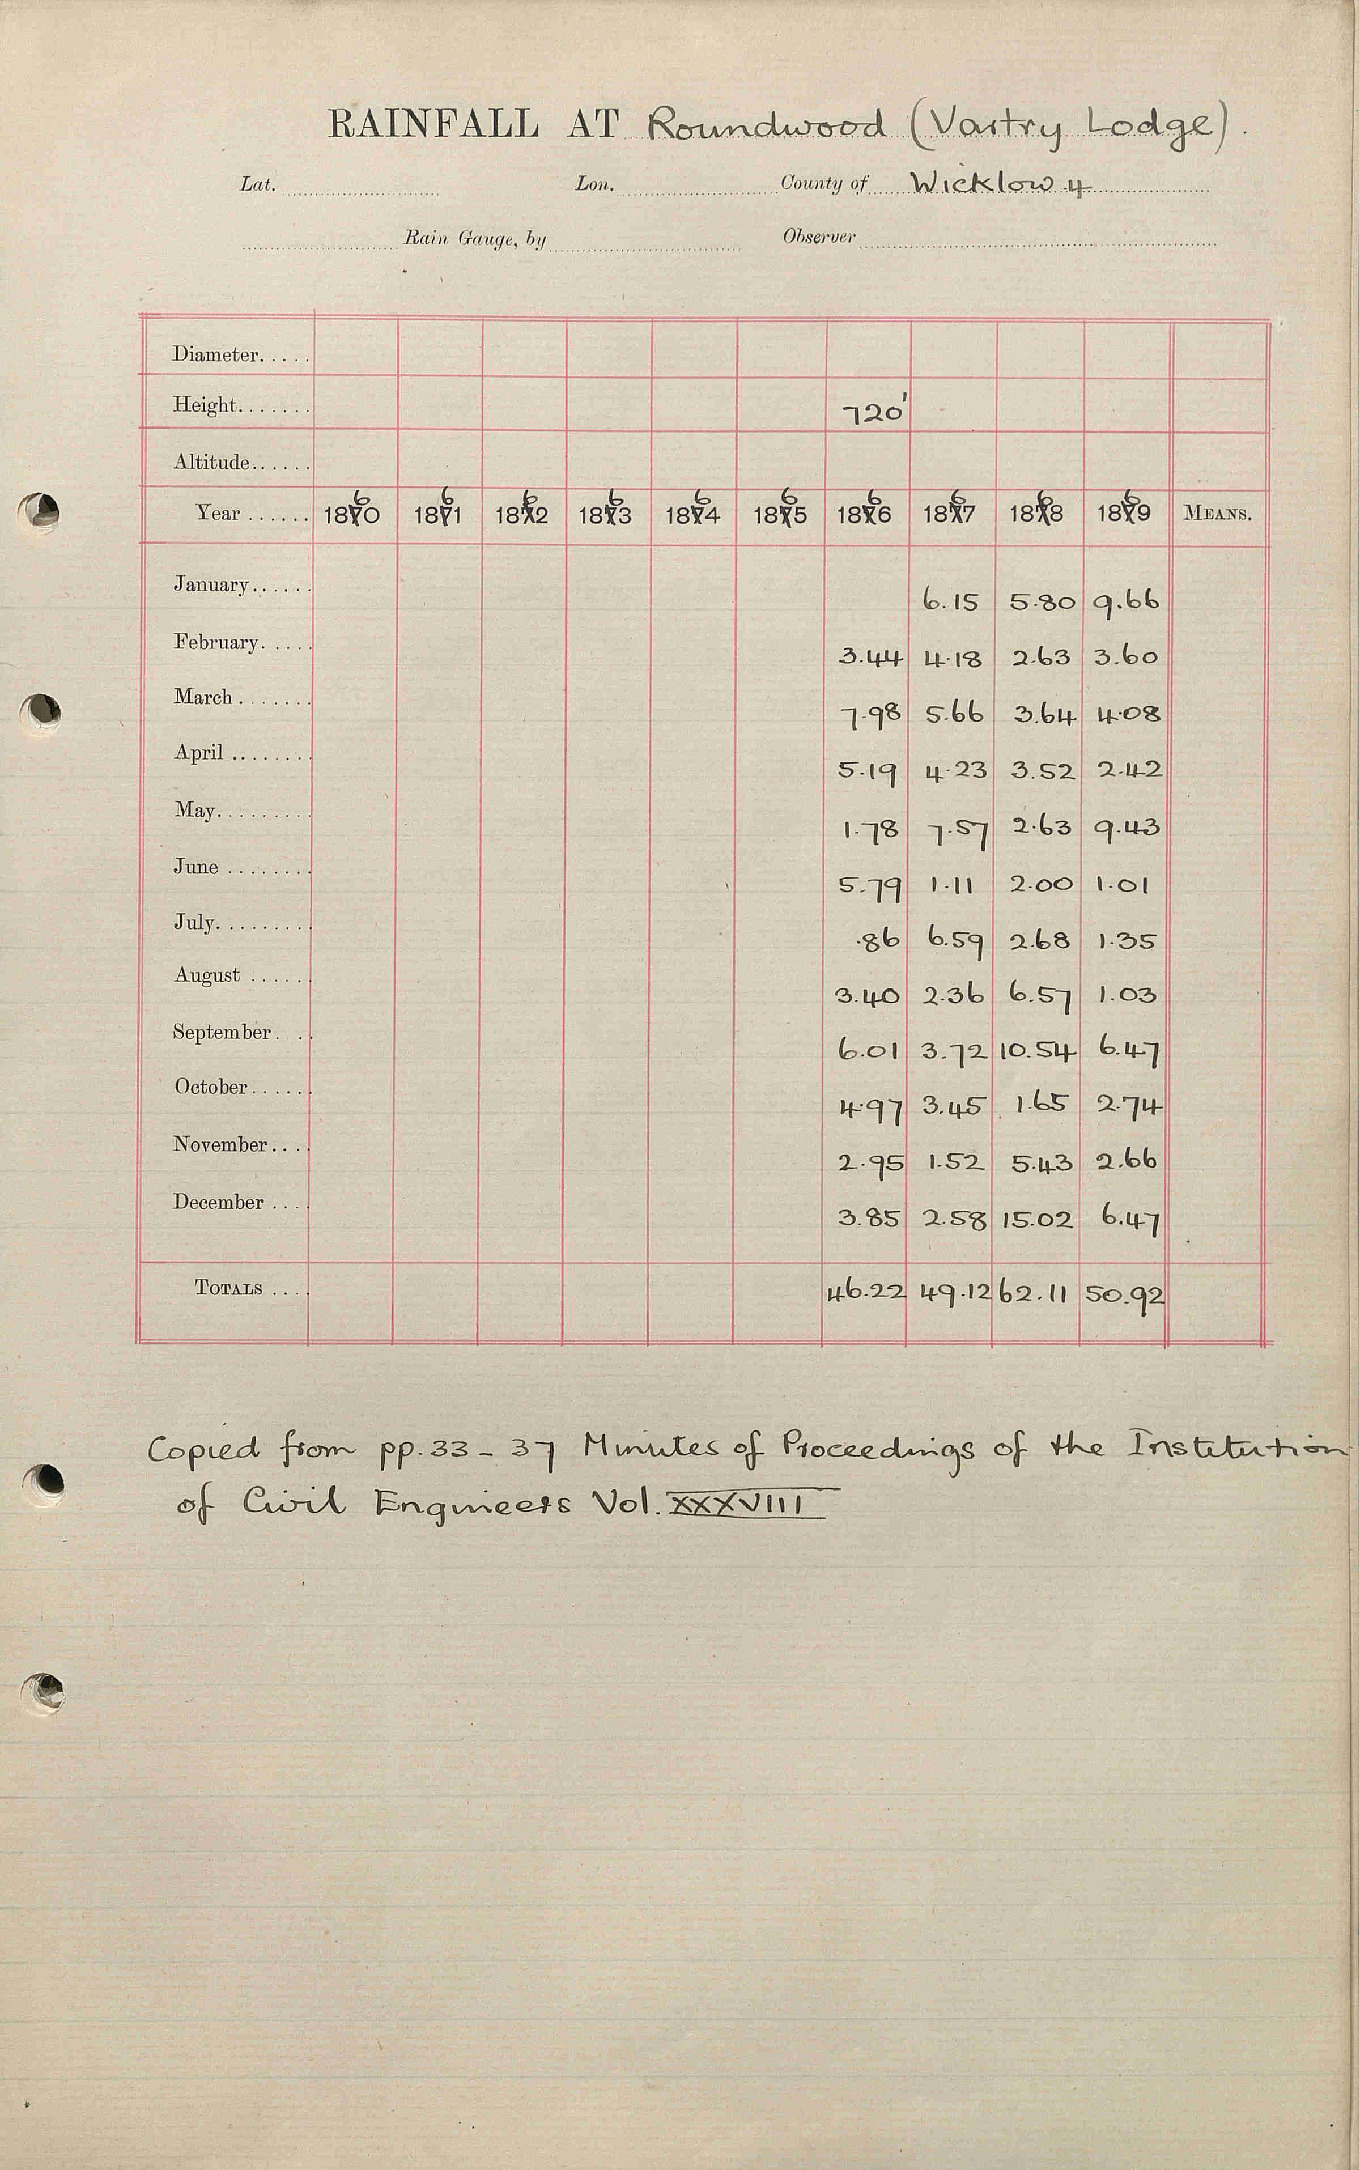 RAINFALL AT Roundwood (Vartry Lodge).
Lat. Lon. County of Wicklow 4
Rain Gauge, by Observer
Diameter
Height 720'
Altitude
Year 1860 1861 1862 1863 1864 1865 1866 1867 1868 1869 MEANS.
January 6.15 5.80 9.66
February 3.44 4.18 2.63 3.60
March 7.98 5.66 3.64 4.08
April 5.19 4.23 3.52 2.42
May 1.78 7.57 2.63 9.43
June 5.79 1.11 2.00 1.01
July .86 6.59 2.68 1.35
August 3.40 2.36 6.57 1.03
September 6.01 3.72 10.54 6.47
October 4.97 3.45 1.65 2.74
November 2.95 1.52 5.43 2.66
December 3.85 2.58 15.02 6.47
TOTALS 46.22 49.12 62.11 50.92
Copied from pp. 33 - 37 Minutes of Proceedings of the Institution
of Civil Engineers Vol. XXXVIII